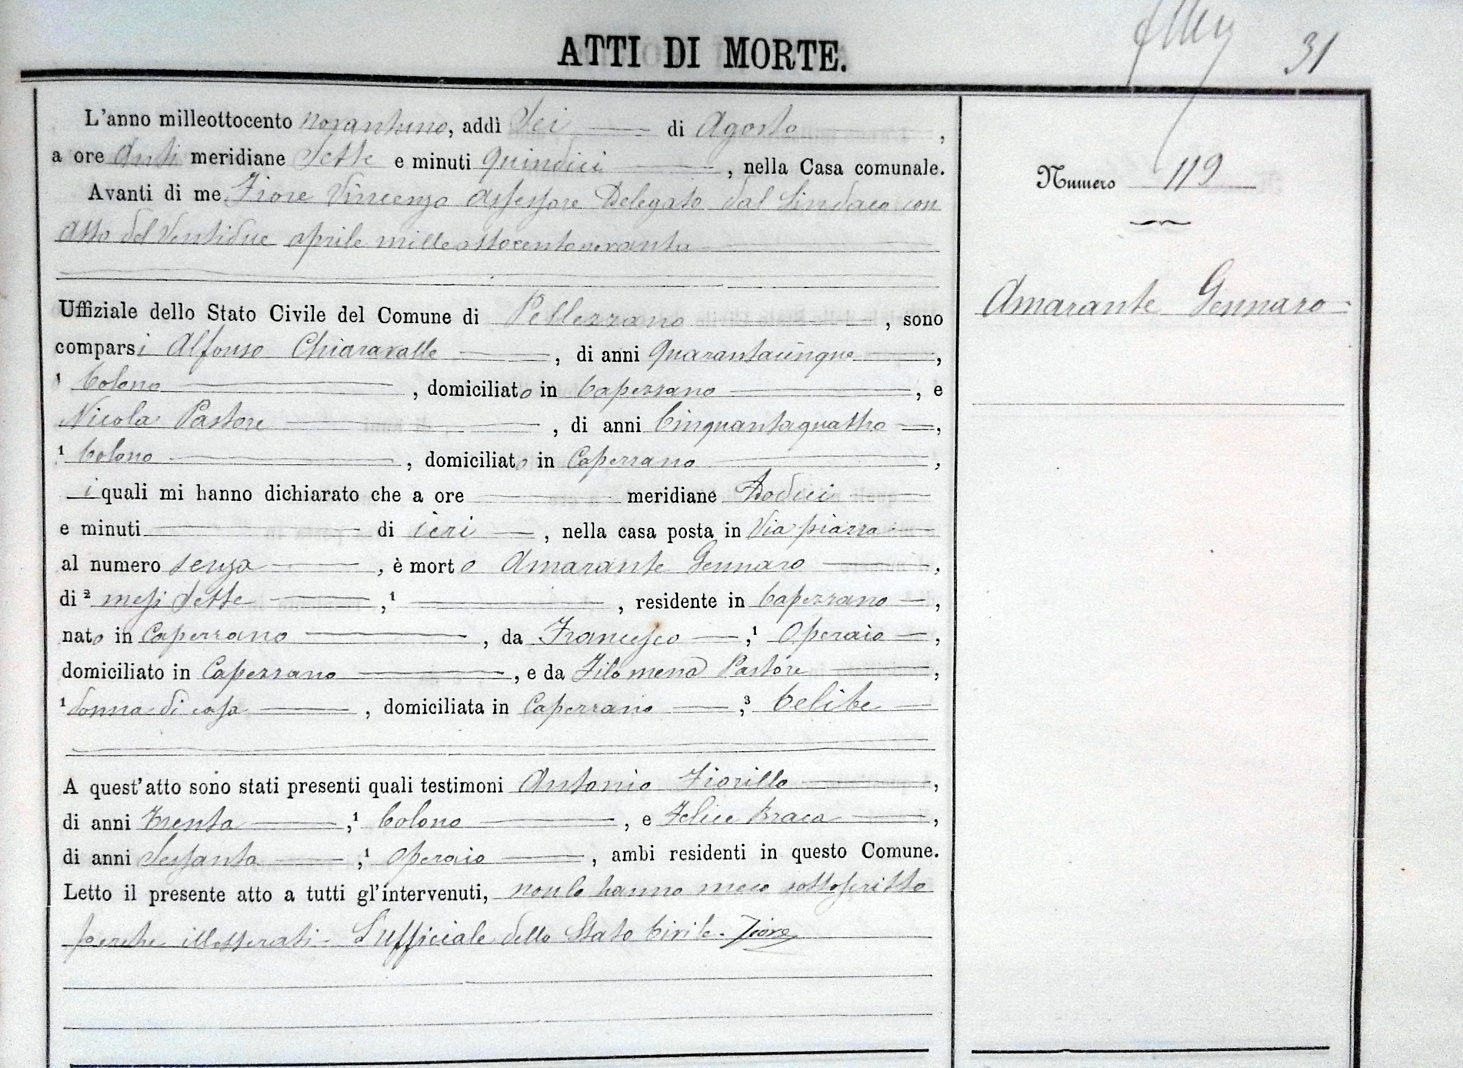 ATTI DI MORTE.
31
L'anno milleottocento novantuno, addì sei di Agosto,
a ore Anti meridiane Sette e minuti quindici, nella Casa comunale.
Avanti di me Fiore Vincenzo Assessore Delegato dal Sindaco con
atto del Ventidue aprile milleottocentonovantu
Uffiziale dello Stato Civile del Comune di Pellezzano, sono
comparsi Alfonso Chiaravalle, di anni quarantacinque,
¹ Colono, domiciliato in Capezzano, e
Nicola Pastore, di anni Cinquantaquattro,
¹ Colono, domiciliato in Capezzano,
i quali mi hanno dichiarato che a ore meridiane Dodici
e minuti di ieri, nella casa posta in Via piazza
al numero senza, è morto Amarante Gennaro,
di ² mesi sette, ¹, residente in Capezzano,
nato in Capezzano, da Francesco, ¹ Operaio,
domiciliato in Capezzano, e da Filomena Pastore,
¹ donna di casa, domiciliata in Capezzano, ³ Celibe
A quest'atto sono stati presenti quali testimoni Antonio Fiorillo,
di anni Trenta, ¹ Colono, e Felice Braca,
di anni Sessanta, ¹ Operaio, ambi residenti in questo Comune.
Letto il presente atto a tutti gl'intervenuti, non lo hanno meco sottoscritto
perche illetterati - L'ufficiale dello Stato Civile. Fiore
Numero 119
Amarante Gennaro